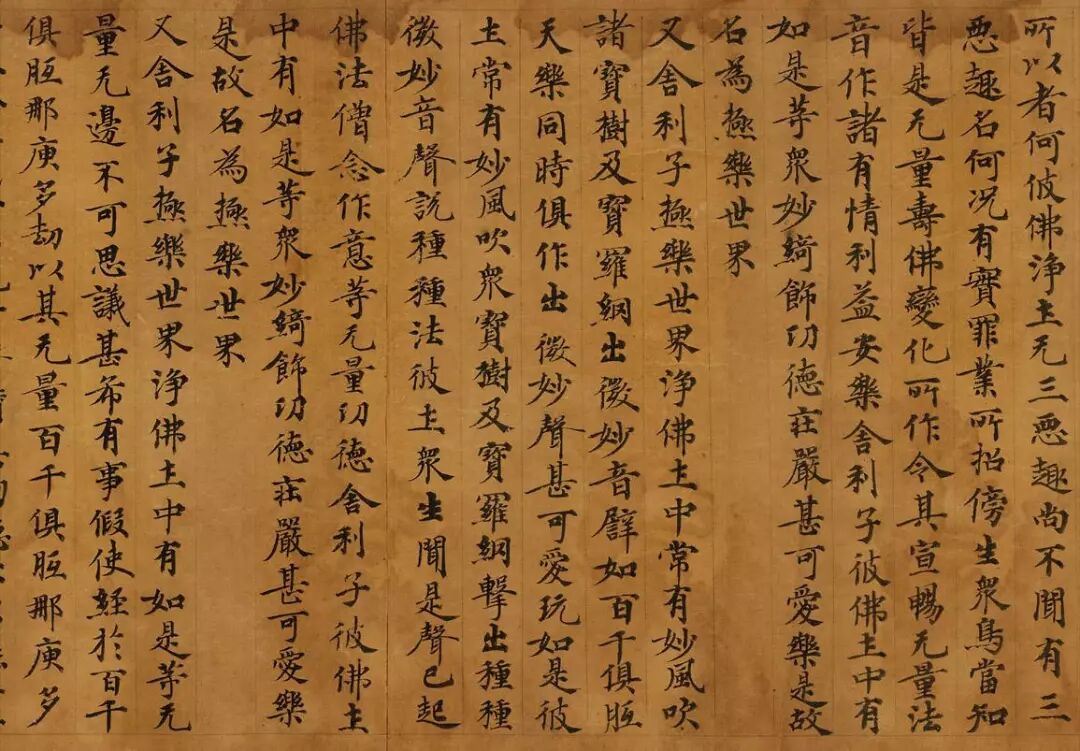 所以者何彼佛浄土无三悪趣尚不聞有三
悪趣名何况有實罪業所招傍生衆鳥當知
皆是无量壽佛變化所作令其宣暢无量法
音作諸有情利益安樂舍利子彼佛土中有
如是等衆妙綺飾㓛徳莊嚴甚可愛樂是故
名為極樂世界
又舍利子極樂世界浄佛土中常有妙風吹
諸寳樹及寳羅網出微妙音譬如百千俱胝
天樂同時俱作出微妙聲甚可愛玩如是彼
土常有妙風吹衆寳樹及寳羅網擊出種種
微妙音聲説種種法彼土衆生聞是聲已起
佛法僧念作意等无量㓛徳舍利子彼佛土
中有如是等衆妙綺飾㓛徳莊嚴甚可愛樂
是故名為極樂世界
又舍利子極樂世界浄佛土中有如是等无
量无邊不可思議甚希有事假使經於百千
俱胝那庾多劫以其无量百千俱胝那庾多